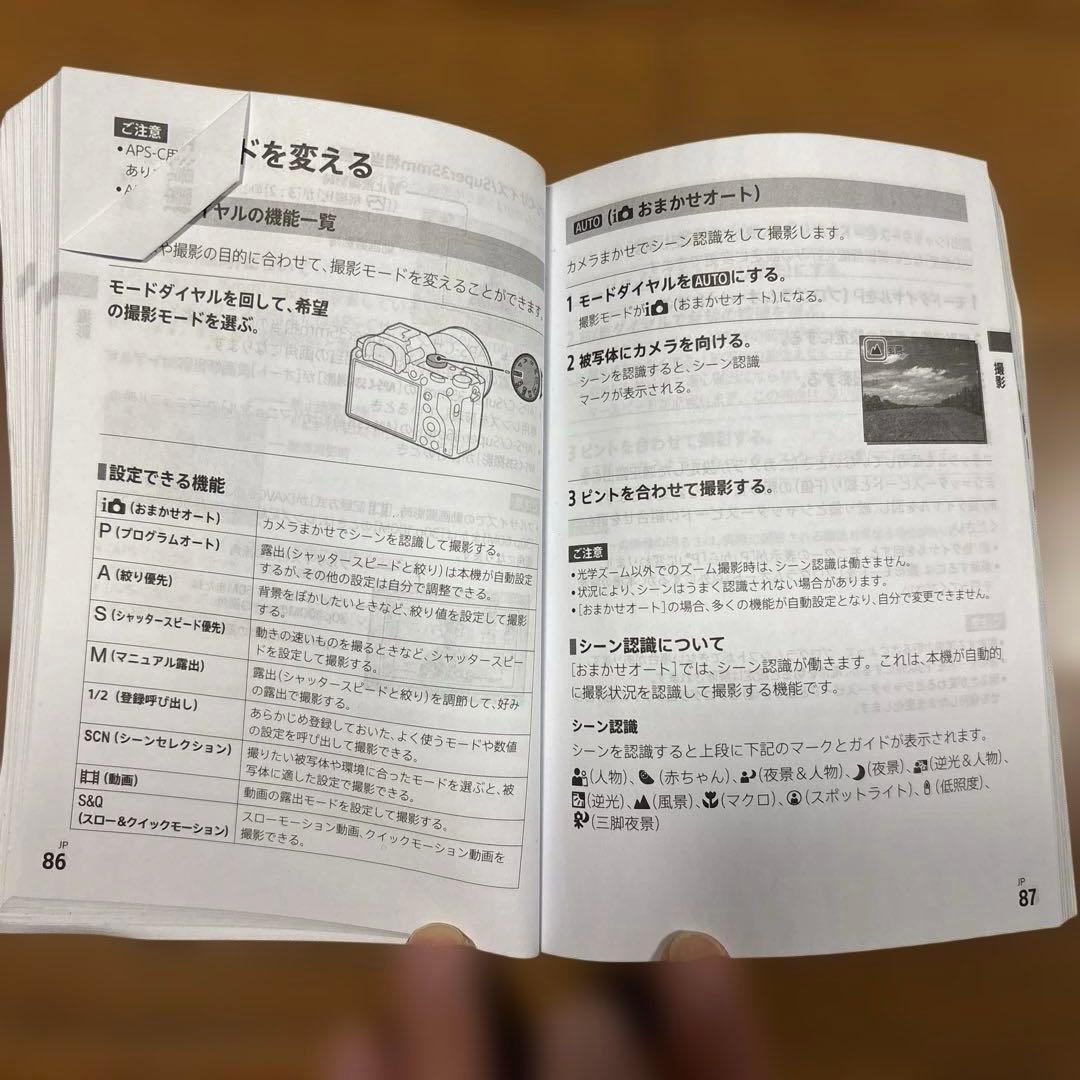 ご注意
•APS-C
あり
ドを変える
イヤルの機能一覧
や撮影の目的に合わせて、撮影モードを変えることができます
モードダイヤルを回して、希望
の撮影モードを選ぶ。
設定できる機能
i (おまかせオート)
カメラまかせでシーンを認識して撮影する。
P (プログラムオート)
露出(シャッタースピードと絞り)は本機が自動設定
するが、その他の設定は自分で調整できる。
A (絞り優先)
背景をぼかしたいときなど、絞り値を設定して撮影
する。
S (シャッタースピード優先)
動きの速いものを撮るときなど、シャッタースピー
ドを設定して撮影する。
M (マニュアル露出)
露出(シャッタースピードと絞り)を調節して、好み
の露出で撮影する。
1/2 (登録呼び出し)
あらかじめ登録しておいた、よく使うモードや数値
の設定を呼び出して撮影できる。
SCN (シーンセレクション)
撮りたい被写体や環境に合ったモードを選ぶと、被
写体に適した設定で撮影できる。
(動画)
動画の露出モードを設定して撮影する。
S&Q
(スロー&クイックモーション)
スローモーション動画、クイックモーション動画を
撮影できる。
JP
86
AUTO (i おまかせオート)
カメラまかせでシーン認識をして撮影します。
1 モードダイヤルをAUTOにする。
撮影モードがi (おまかせオート)になる。
2 被写体にカメラを向ける。
シーンを認識すると、シーン認識
マークが表示される。
撮影
3 ピントを合わせて撮影する。
ご注意
•光学ズーム以外でのズーム撮影時は、シーン認識は働きません。
•状況により、シーンはうまく認識されない場合があります。
•[おまかせオート]の場合、多くの機能が自動設定となり、自分で変更できません。
シーン認識について
[おまかせオート]では、シーン認識が働きます。これは、本機が自動的
に撮影状況を認識して撮影する機能です。
シーン認識
シーンを認識すると上段に下記のマークとガイドが表示されます。
(人物)、(赤ちゃん)、(夜景&人物)、(夜景)、(逆光&人物)、
(逆光)、(風景)、(マクロ)、(スポットライト)、(低照度)、
(三脚夜景)
JP
87